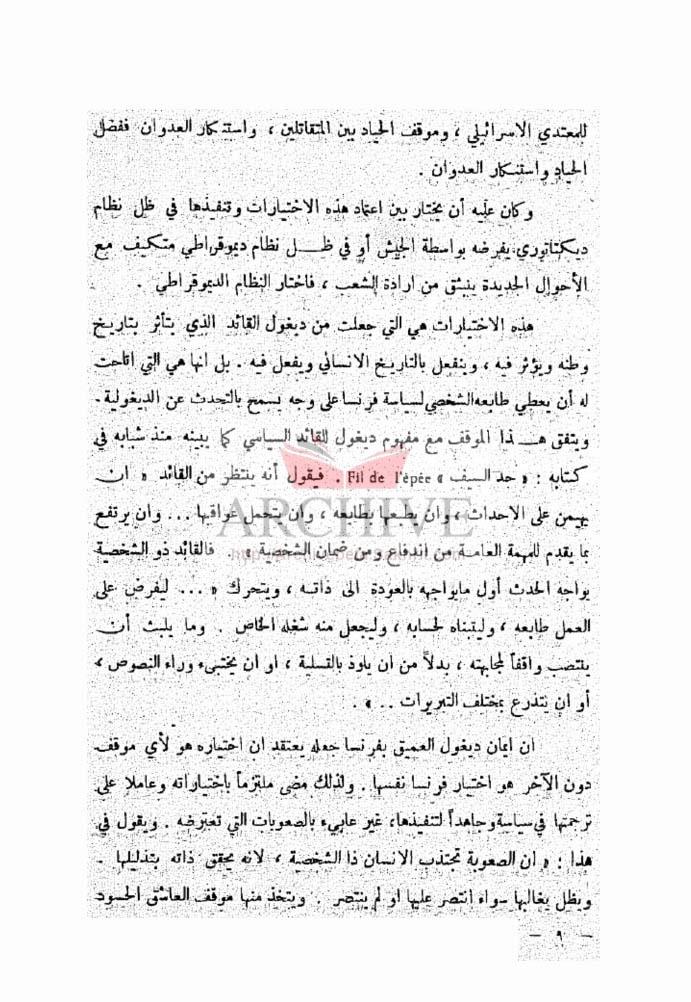 للمعتدي الاسرائيلي ، وموقف الحياد بين المتقاتلين ، واستنكار العدوان ففضل
الحياد واستنكار العدوان .
وكان عليه أن يختار بين اعتماد هذه الاختيارات وتنفيذها في ظل نظام
ديكتاتوري يفرضه بواسطة الجيش أو في ظل نظام ديموقراطي متكيف مع
الأحوال الجديدة ينبثق من ارادة الشعب ، فاختار النظام الديموقراطي .
هذه الاختيارات هي التي جعلت من ديغول القائد الذي يتأثر بتاريخ
وطنه ويؤثر فيه ، وينفعل بالتاريخ الانساني ويفعل فيه . بل انها هي التي اتاحت
له أن يعطي طابعه الشخصي لسياسة فرنسا على وجه يسمح بالتحدث عن الديغولية .
ويتفق هذا الموقف مع مفهوم ديغول للقائد السياسي كما يبينه منذ شبابه في
كتابه : « حد السيف » Fil de l'épée . فيقول أنه ينتظر من القائد « ان
ARCHIVE
يهيمن على الاحداث ، وان يطبعها بطابعه ، وان يتحمل عواقبها ... وان يرتفع
بما يقدم للمهمة العامة من اندفاع ومن ضمان الشخصية » . فالقائد ذو الشخصية
يواجه الحدث أول مايواجهه بالعودة الى ذاته ، ويتحرك « ... ليفرض على
العمل طابعه ، وليتبناه لحسابه ، وليجعل منه شغله الخاص . وما يلبث أن
ينتصب واقفاً لمجابهته ، بدلاً من ان يلوذ بالتسلية ، او ان يختبىء وراء النصوص ،
أو ان يتذرع بمختلف التبريرات .. » .
ان ايمان ديغول العميق بفرنسا جعله يعتقد ان اختياره هو لأي موقف
دون الآخر هو اختيار فرنسا نفسها . ولذلك مضى ملتزماً باختياراته وعاملا على
ترجمتها في سياسة وجاهداً لتنفيذها، غير عابيء بالصعوبات التي تعترضه . ويقول في
هذا : « ان الصعوبة تجتذب الانسان ذا الشخصية ، لانه يحقق ذاته بتذليلها .
ويظل يغالبها سواء انتصر عليها او لم ينتصر . ويتخذ منها موقف العاشق الحسود
– ٩ –